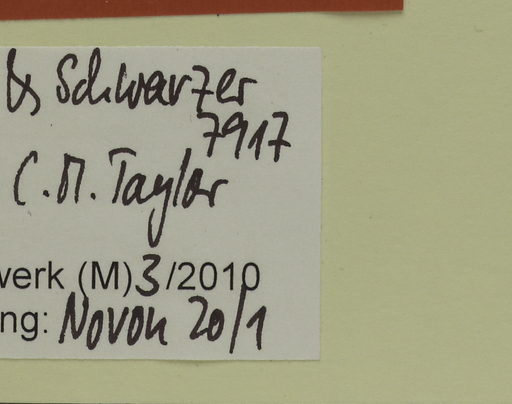 & Schwarzer
7917
C.M. Taylor
werk (M)3/2010
ng: Novon 20/1